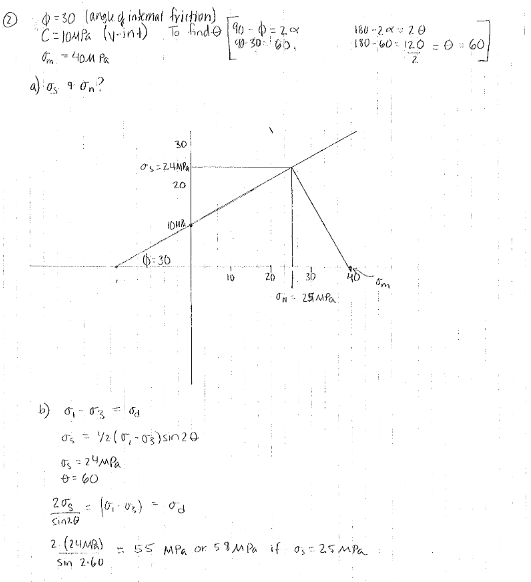 ② ϕ = 30 (angle of internal friction)
C = 10 MPa (y-int)
σm = 40 MPa
To find θ [ 90 - ϕ = 2α
90 - 30 = 60.
180 - 2α = 2θ
180 - 60 = 120/2 = θ = 60 ]
a) σs & σn?
30
σs = 24 MPa
20
10 MPa
ϕ = 30
10 20 30 40 σm
σN = 25 MPa
b) σ1 - σ3 = σd
σs = 1/2 (σ1 - σ3) sin 2θ
σs = 24 MPa
θ = 60
2σs / sin 2θ = (σ1 - σ3) = σd
2 · (24 MPa) / sin 2·60 = 55 MPa or 58 MPa if σs = 25 MPa